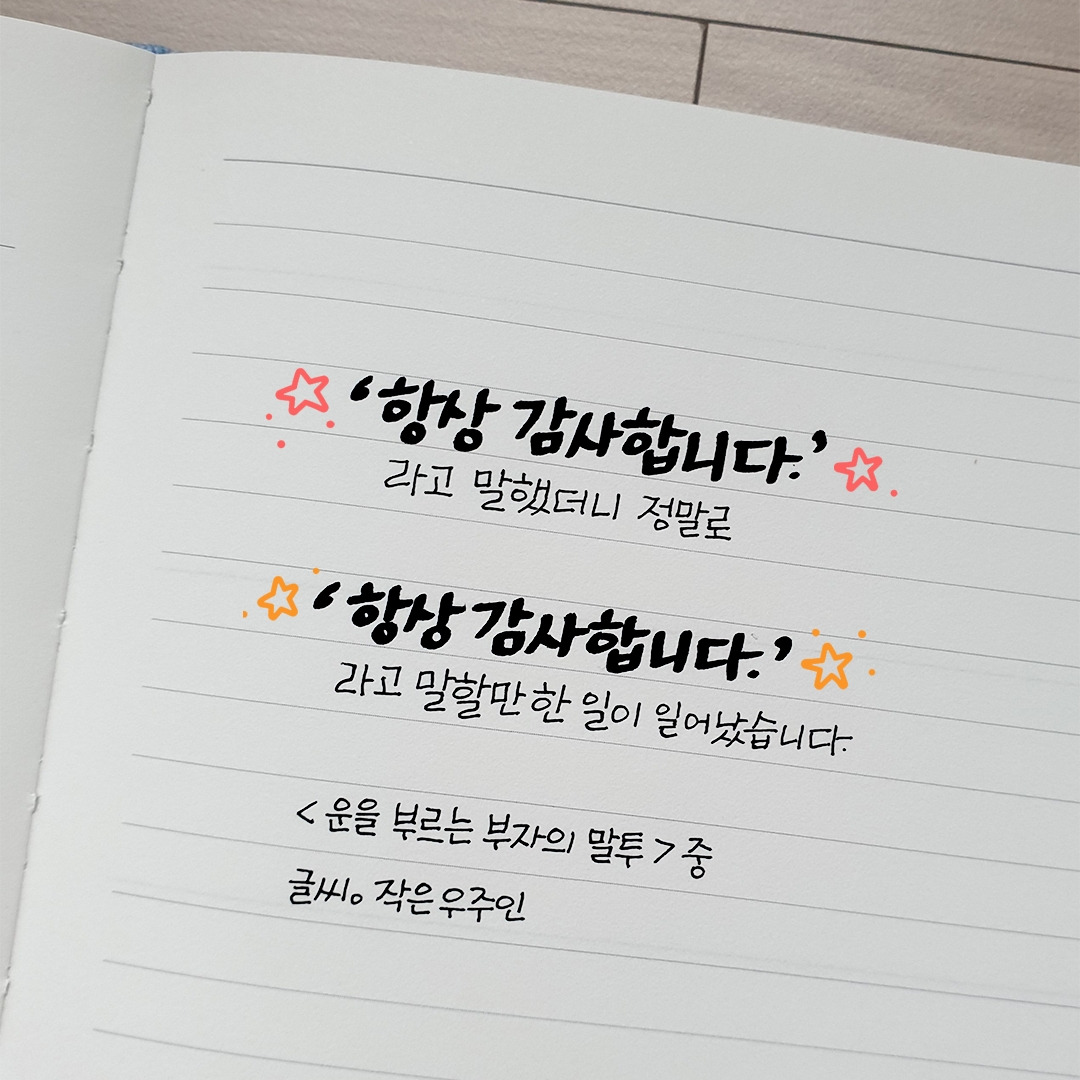 '항상 감사합니다.'
라고 말했더니 정말로
'항상 감사합니다.'
라고 말할만한 일이 일어났습니다.
<운을 부르는 부자의 말투> 중
글씨。작은우주인